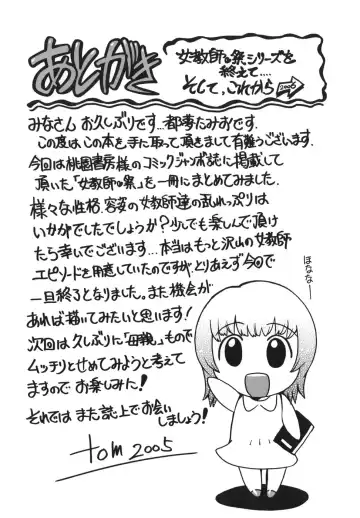 あとがき
女教師の祭シリーズを
終えて....
そして、これから
2006
みなさん お久しぶりです...都夢たみおです.
この度は、この本を手に取って頂きまして有難うございます.
今回は桃園書房様のコミックジャンボ誌に掲載して
頂いた、「女教師の祭」を一冊にまとめてみました.
様々な性格、容姿の女教師達の乱れっぷりは
いかがでしたでしょうか?少しでも楽しんで頂け
たら幸いでございます...本当はもっと沢山の女教師
エピソードを用意していたのですが、とりあえず今回で
一旦終了となりました。また機会が
あれば描いてみたいと思います!
次回は久しぶりに「母親」もので
ムッチリとせめてみようと考えて
ますのでお楽しみに!
それでは また誌上でお会い
しましょう!
tom 2005
ほなな〜